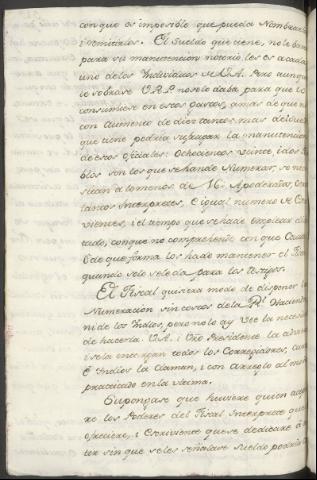 con que es imposible que pueda Nombrarlos
i remitirlos. El sueldo que tiene, no le basta
para su manutencion notorio les es acada
uno delos Individuos de V.A. Pero aunque
le sobrase V.R.P. no se lo daba para que lo
consumiese en estos gastos, amas de que ni
con aumento de diez tantos mas del sueldo
que tiene podria sufragar la manutencion
de esos oficiales: Ochocientos veinte, i dos Pue
blos son los que se han de Numerar, se nece
sitan alomenos de Apoderados, otros
tantos Interpretes, e igual numero de Escri
vientes, i el tiempo que se ha de emplear dila
tado, con que no comprehende con que Caudal
o de que forma los ha de mantener el Fiscal
quando solo se le da para los
El Fiscal quisiera modo de disponer la
Numeracion sin costas dela Rl. Hacienda
ni de los Yndios, pero no lo ay Vee la necesidad
de hacerla. V.A. i Vro Presidente la
i se la encargan todos los Corregidores, Curas
e Yndios la claman, i con arreglo al modo
practicado en la ultima.
Supongase que huviere quien acepta
re los Poderes del Fiscal Interprete que
ofreciere, i Escriviente que se dedicare a
ser sin que se les señalase sueldo podria